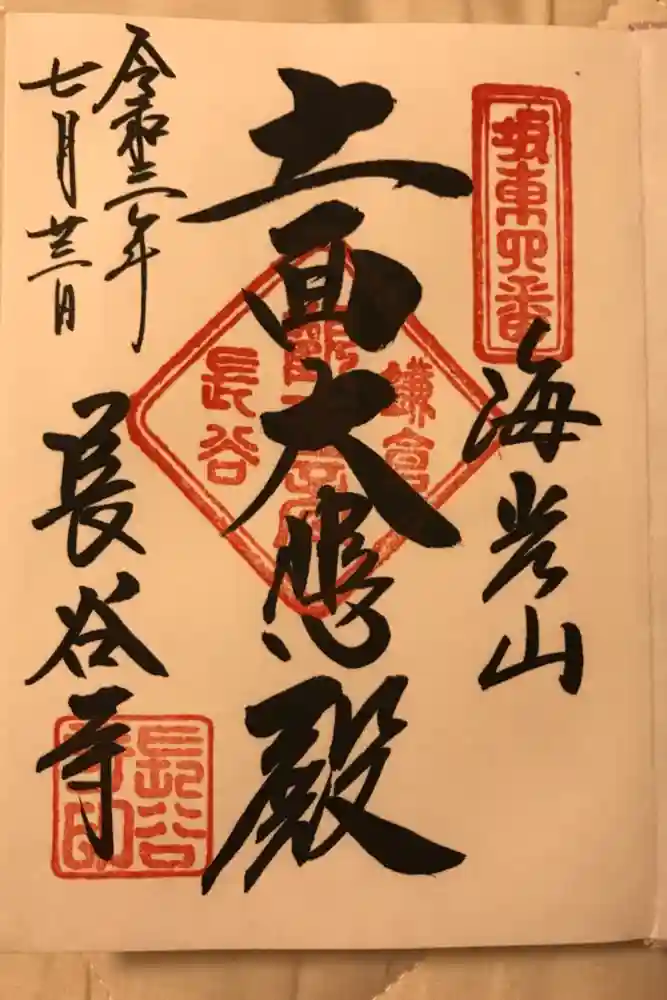 坂東四番
海光山
十一面大悲殿
鎌倉
長谷
令和三年
七月廿三日
長谷寺
長谷
寺印